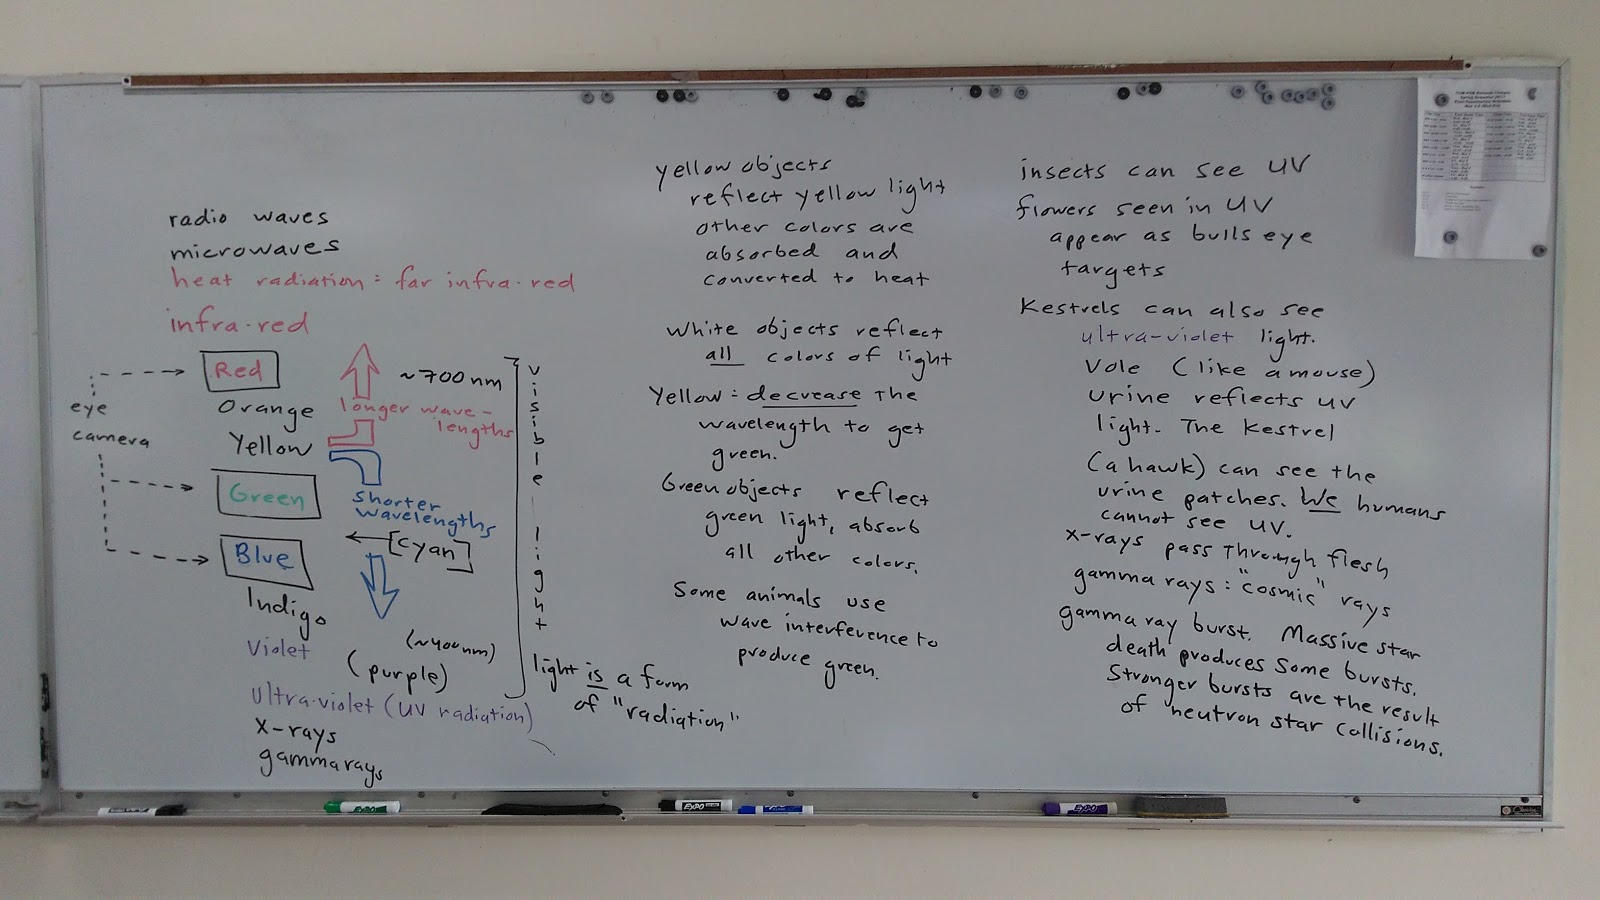 radio waves
microwaves
heat radiation = far infra-red
infra-red
Red
~700nm
Orange
longer wave-
lengths
eye
camera
Yellow
Green
shorter
wavelengths
[cyan]
Blue
Indigo
violet
(~400nm)
(purple)
ultra-violet (UV radiation)
x-rays
gamma rays
visible light
light is a form
of "radiation"
yellow objects
reflect yellow light
other colors are
absorbed and
converted to heat
White objects reflect
all colors of light
Yellow = decrease the
wavelength to get
green.
Green objects reflect
green light, absorb
all other colors.
Some animals use
wave interference to
produce green.
insects can see UV
flowers seen in UV
appear as bulls eye
targets
Kestrels can also see
ultra-violet light.
Vole (like a mouse)
urine reflects UV
light. The Kestrel
(a hawk) can see the
urine patches. We humans
cannot see UV.
x-rays pass through flesh
gamma rays: "cosmic" rays
gamma ray burst. Massive star
death produces some bursts.
Stronger bursts are the result
of neutron star collisions.
EXPO
EXPO
EXPO